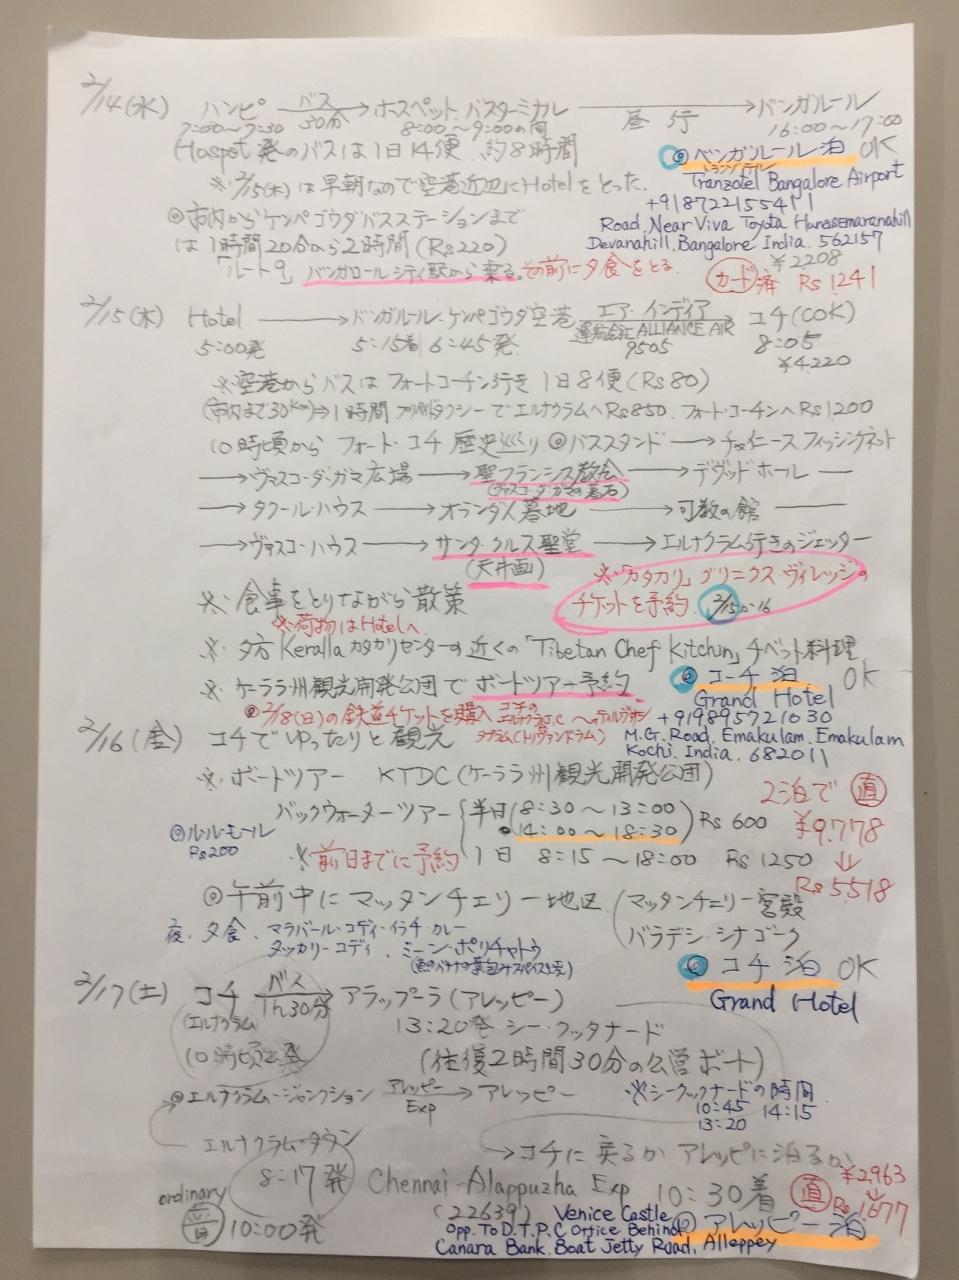 2/14(水) ハンピ バス 30分 → ホスペット バスターミナル → 昼行 → バンガルール
7:00〜7:30 8:00〜9:00の間 16:00〜17:00
Hospet発のバスは1日14便 約8時間
◎ベンガルール泊 OK
※2/15(木)は早朝なので空港近辺にHotelをとった.
トランゾテル
Tranzotel Bangalore Airport
+918722155411
◎市内からケンペゴウダバスステーションまで
は1時間20分から2時間(Rs220)
Road, Near Viva Toyota Hunasemaranahill
Devanahill, Bangalore India. 562157
「ルート9」 バンガロールシティ駅から乗る。その前に夕食をとる.
¥2208
カード済 Rs1241
2/15(木) Hotel → バンガルール・ケンペゴウダ空港 エア・インディア → コチ(COK)
運航会社ALLIANCE AIR
5:00発 5:15着 6:45発 9505 8:05
¥4220
※空港からバスはフォートコーチン行き 1日8便(Rs80)
(市内まで30km)⇒1時間 プリペイドタクシーでエルナクラムへRs850. フォート・コーチンへRs1200
10時頃から フォート・コチ 歴史巡り ◎バススタンド → チャイニーズフィッシングネット
→ ヴァスコ・ダ・ガマ広場 → 聖フランシス教会 → デヴッドホール
(ヴァスコ・ダ・ガマの墓石)
→ タクール・ハウス → オランダ人墓地 → 司教の館
→ ヴァスコ・ハウス → サンタ・クルス聖堂 → エルナクラム行きのジェッター
(天井画)
※「カタカリ」グリニクス・ヴィレッジの
チケットを予約. 2/15か16
※ 食事をとりながら散策
※荷物はHotelへ
※ 夕方Kerallaカタカリセンターの近くの「Tibetan Chef Kitchin」チベット料理
※ ケーララ州観光開発公団でボートツアー予約
◎コーチ泊 OK
Grand Hotel
◎2/18(日)の鉄道チケットを購入
+919895721030
M.G. Road, Emakulam, Emakulam
Kochi. India. 682011
2/16(金) コチでゆったりと観光
※ボートツアー KTDC(ケーララ州観光開発公団)
2泊で 直
バックウォーターツアー 半日(8:30〜13:00
14:00〜18:30) Rs600
¥9.778
◎ルル・モール
Rs200
※前日までに予約 1日 8:15〜18:00 Rs1250
↓
Rs5518
◎午前中にマッタンチェリー地区 (マッタンチェリー宮殿
パラデシ・シナゴーク
夜. 夕食. マラバール・コディ・イラチ・カレー
タッカリーコディ、ミーン・ポリチャトゥ
◎コチ泊 OK
Grand Hotel
2/17(土) コチ バス 1h30分 → アラップーラ(アレッピー)
(エルナクラム)
13:20発 シー・クッタナード
10時頃出発
(往復2時間30分の公営ボート)
◎エルナクラム・ジャンクション アレッピーExp → アレッピー
※シークッナードの時間
10:45 14:15
13:20
エルナクラム・タウン
→コチに戻るか アレッピに泊るか
8:17発 Chennai-Alappuzha Exp 10:30着
(22639)
¥2963
↓
直 Rs1677
ordinary
普 10:00発
Venice Castle
◎アレッピー泊
Opp. To D.T.P.C Office Behind
Canara Bank. Boat Jetty Road, Alleppey